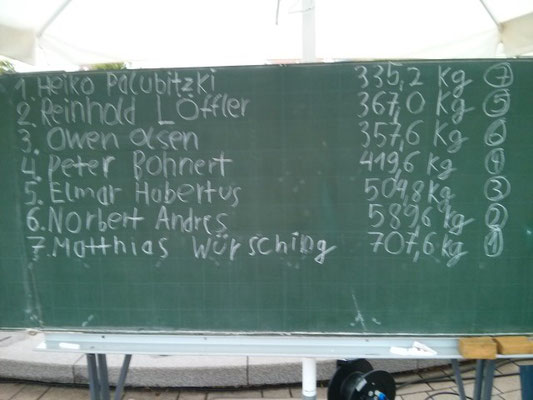 1 Heiko Palubitzki 335,2 kg 7
2. Reinhold Löffler 367,0 kg 5
3. Owen Olsen 357,6 kg 6
4. Peter Bohnert 419,6 kg 4
5. Elmar Hubertus 504,8 kg 3
6. Norbert Andres 589,6 kg 2
7. Matthias Würsching 707,6 kg 1